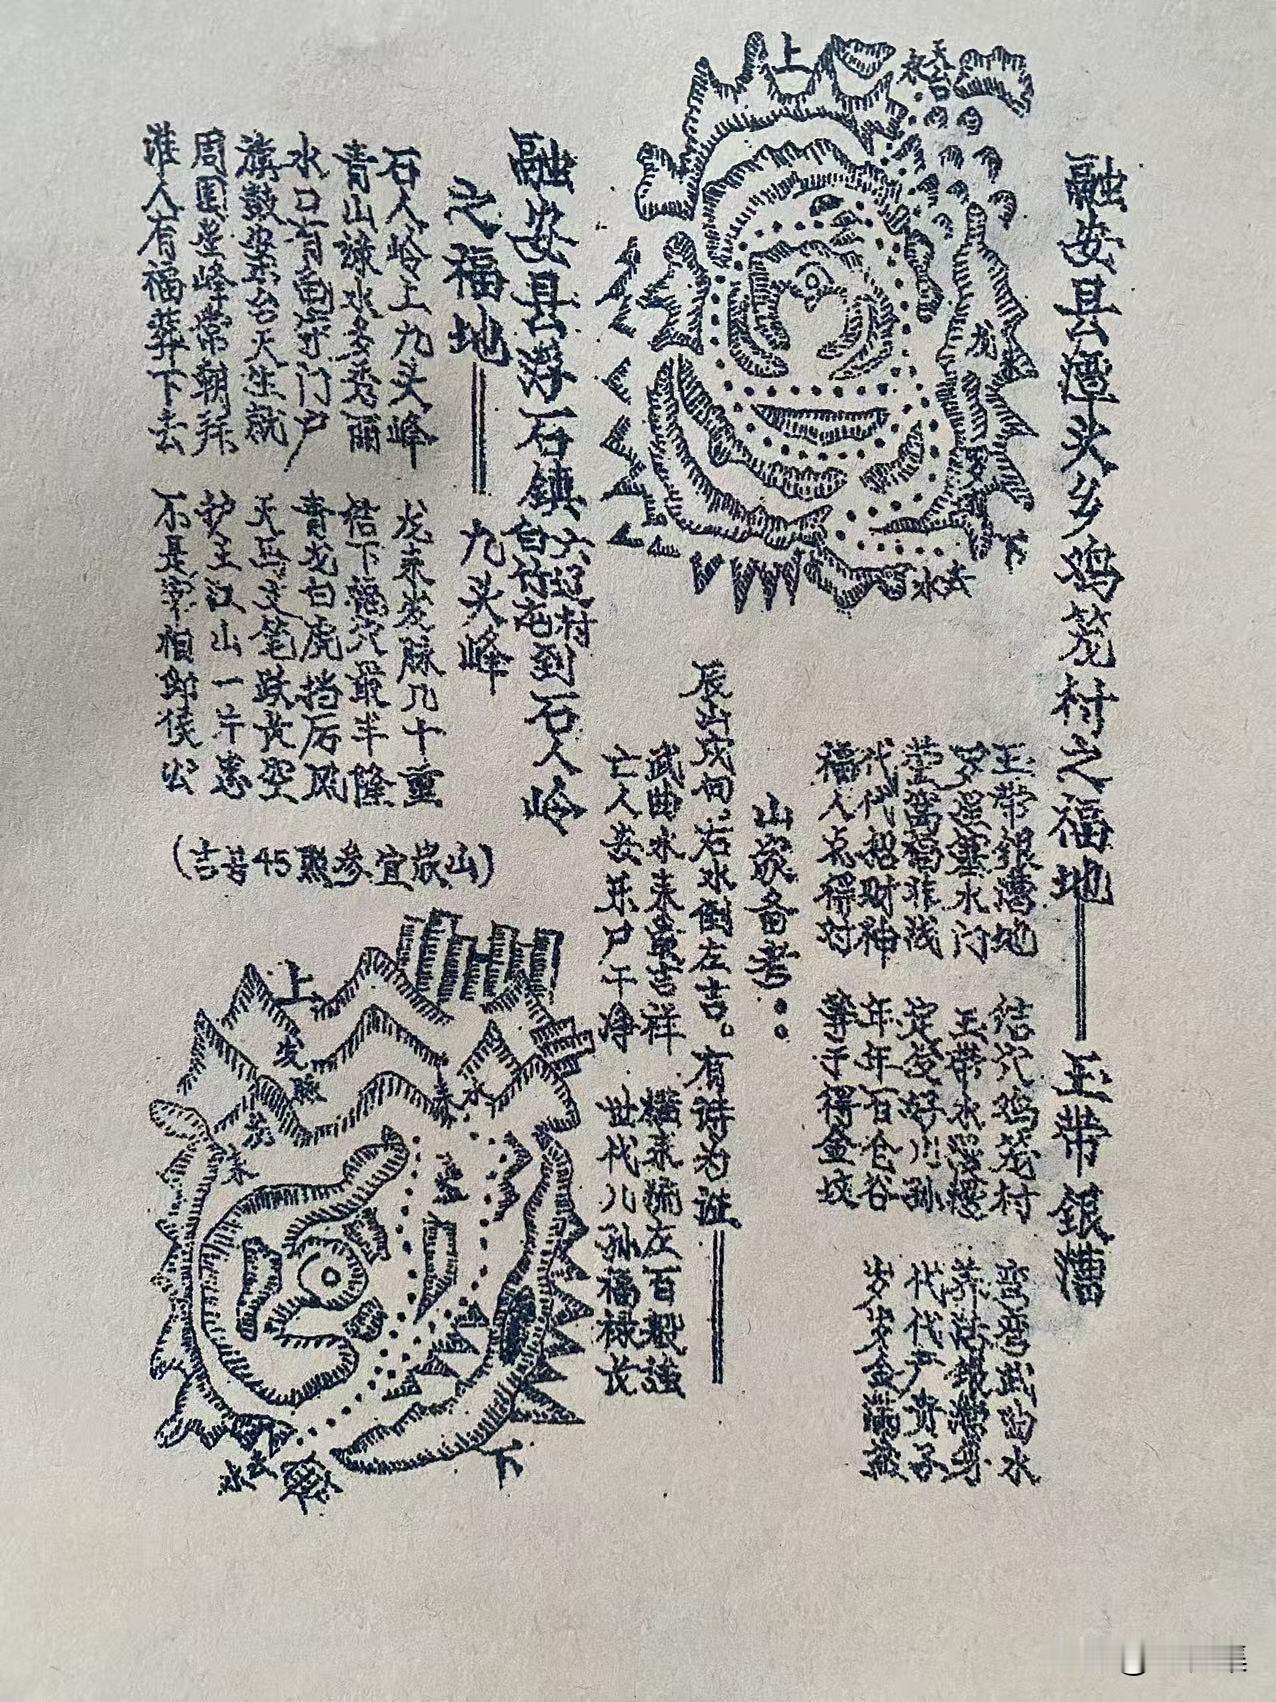 融安县潭头乡鸡笼村之福地——玉带银漕
玉带银漕地 结穴鸡笼村 湾武曲水
罗星塞水门 玉带水深缓 葬落银漕身
莹窝福非浅 定发好儿孙 代代产贵子
代代招财神 年年百仓谷 岁岁金满
福人点得对 等于得金
山家备考：
辰山戌向，右水倒左吉。有诗为证——
武曲水来最吉祥 来流左百般强
亡人安乐尸干净 世代儿孙福禄长
上
天台
水
龙
罗
下
水去
融安县浮石镇六村白竹屯到石人岭
之福地——九头峰
石人岭上九头峰 龙来发脉几十重
青山绿水多秀丽 下龙穴最丰隆
水口有龟守门户 青龙白虎挡后风
旗鼓台天生就 天马文笔跃长空
周围星峰常朝拜 护主江山一片忠
准人有福葬下去 不是宰相即侯公
(吉45参宜山)
上
发脉
龙来
来水
下
水去